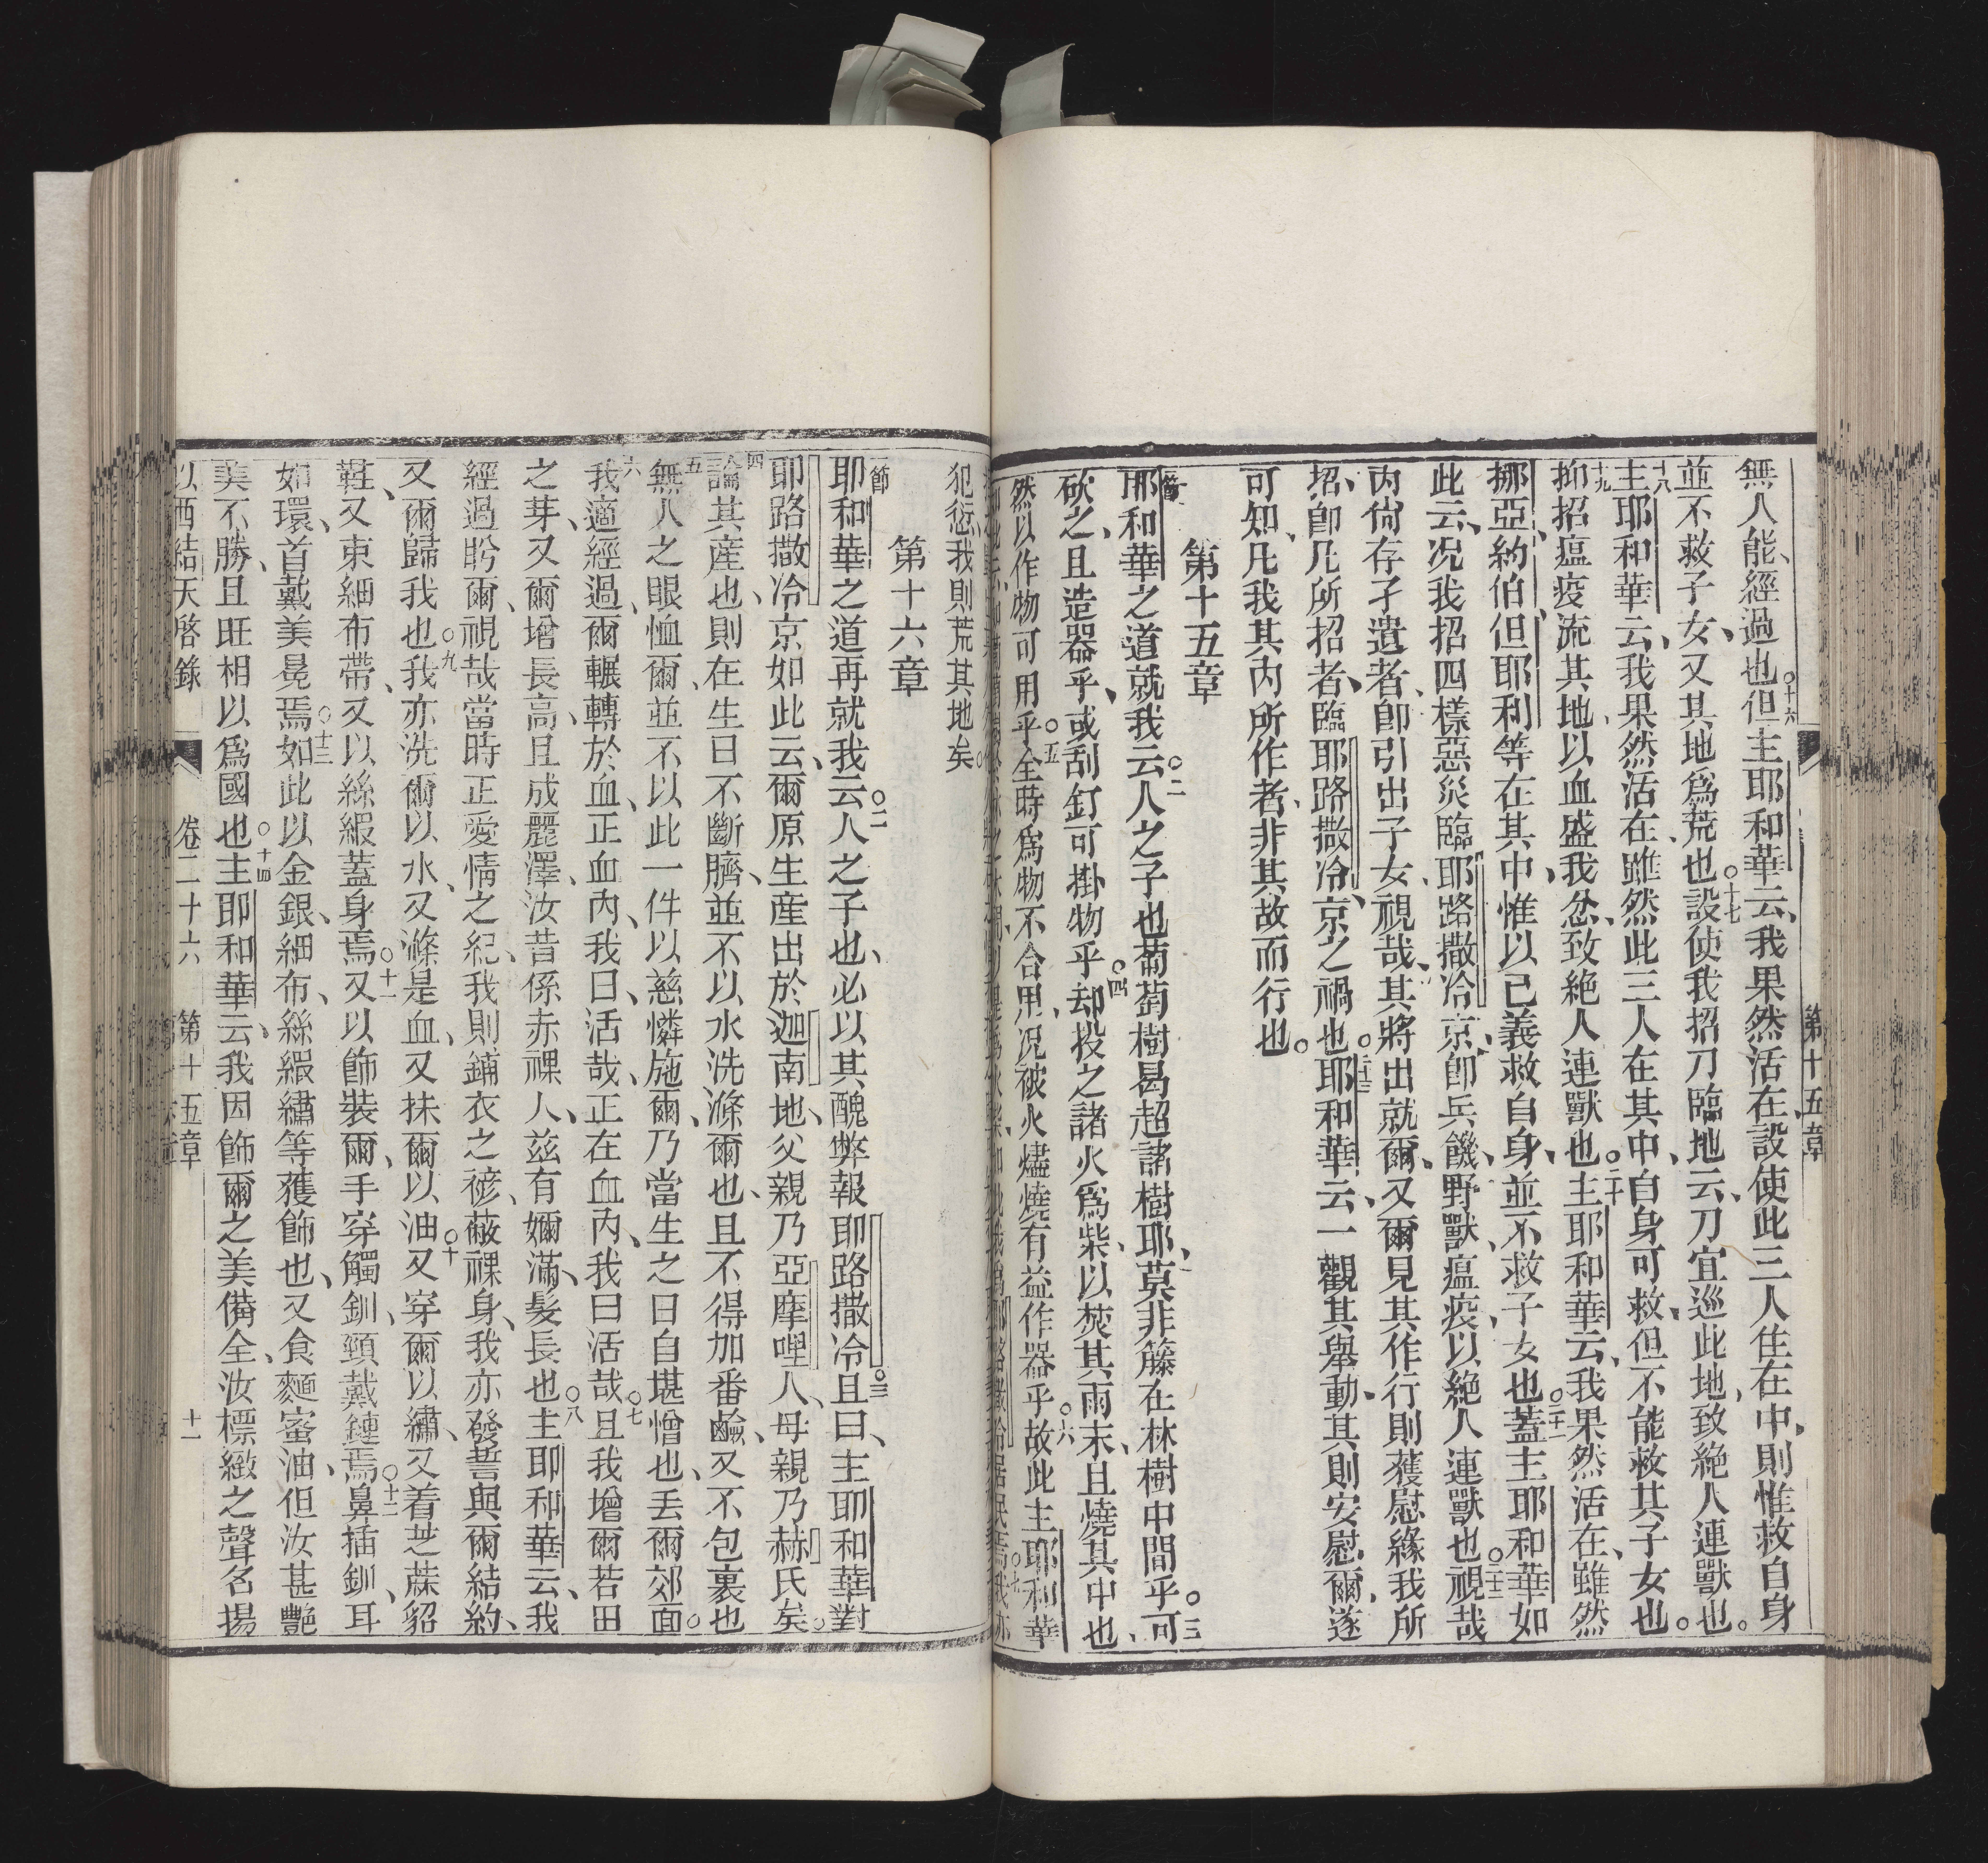 無人能、經過也。十六但主耶和華云、我果然活在、設使此三人住在中、則惟救自身
並不救子女、又其地爲荒也。十七設使我招刀臨地云、刀宜巡此地、致絶人連獸也。
十八主耶和華云、我果然活在、雖然此三人在其中、自身可救、但不能救其子女也。
十九抑招瘟疫流其地、以血盛我忿、致絶人連獸也。二十主耶和華云、我果然活在、雖然
挪亞、約伯、但耶利等在其中、惟以已義救自身、並不救子女也。二十一蓋主耶和華如
此云、况我招四樣惡災臨耶路撒冷京、卽兵、饑、野獸、瘟疫、以絶人連獸也。二十二視哉
內尙存孑遺者、卽引出子女、視哉、其將出就爾、又爾見其作行、則獲慰、緣我所
招、卽凡所招者、臨耶路撒冷京之禍也。二十三耶和華云、一觀其舉動、其則安慰爾、遂
可知、凡我其內所作者、非其故而行也。
第十五章
一節耶和華之道就我云。二人之子也、葡萄樹曷超諸樹耶、莫非籐在林樹中間乎。三可
砍之、且造器乎、或刮釘可掛物乎。四却投之諸火爲柴、以焚其兩末、且燒其中也、
然以作物可用乎。五全時爲物不合用、况被火燼燒、有益作器乎。六故此主耶和華
犯愆、我則荒其地矣。
第十六章
節耶和華之道再就我云。二人之子也、必以其醜弊報耶路撒冷。三且曰、主耶和華對
耶路撒冷京如此云、爾原生産出於迦南地、父親乃亞摩哩人、母親乃赫氏矣。
四論其産也、則在生日不斷臍、並不以水洗滌爾也、且不得加番鹼、又不包裏也
五無人之眼恤爾、並不以此一件以慈憐施爾、乃當生之日自堪憎也、丢爾郊面。
六我適經過、爾輾轉於血、正血內、我曰、活哉、正在血內、我曰活哉。七且我增爾若田
之芽、又爾增長高、且成麗澤、汝昔係赤裸人、玆有嬭滿、髮長也。八主耶和華云、我
經過盻爾、視哉、當時正愛情之紀、我則鋪衣之䙝、蔽裸身、我亦發誓與爾結約、
又爾歸我也。九我亦洗爾以水、又滌是血、又抹爾以油。十又穿爾以繡、又着芝蔴貂
鞋、又束細布帶、又以絲緞蓋身焉。十一又以飾裝爾、手穿觸釧、頸戴鏈焉。十二鼻插釧、耳
如環、首戴美冕焉。十三如此以金銀、細布、絲緞繡等獲飾也、又食麵蜜油、但汝甚艷
美不勝、且旺相以爲國也。十四主耶和華云、我因飾爾之美備全、汝標緻之聲名揚
以西結天啓錄 卷二十六 第十五章 十一